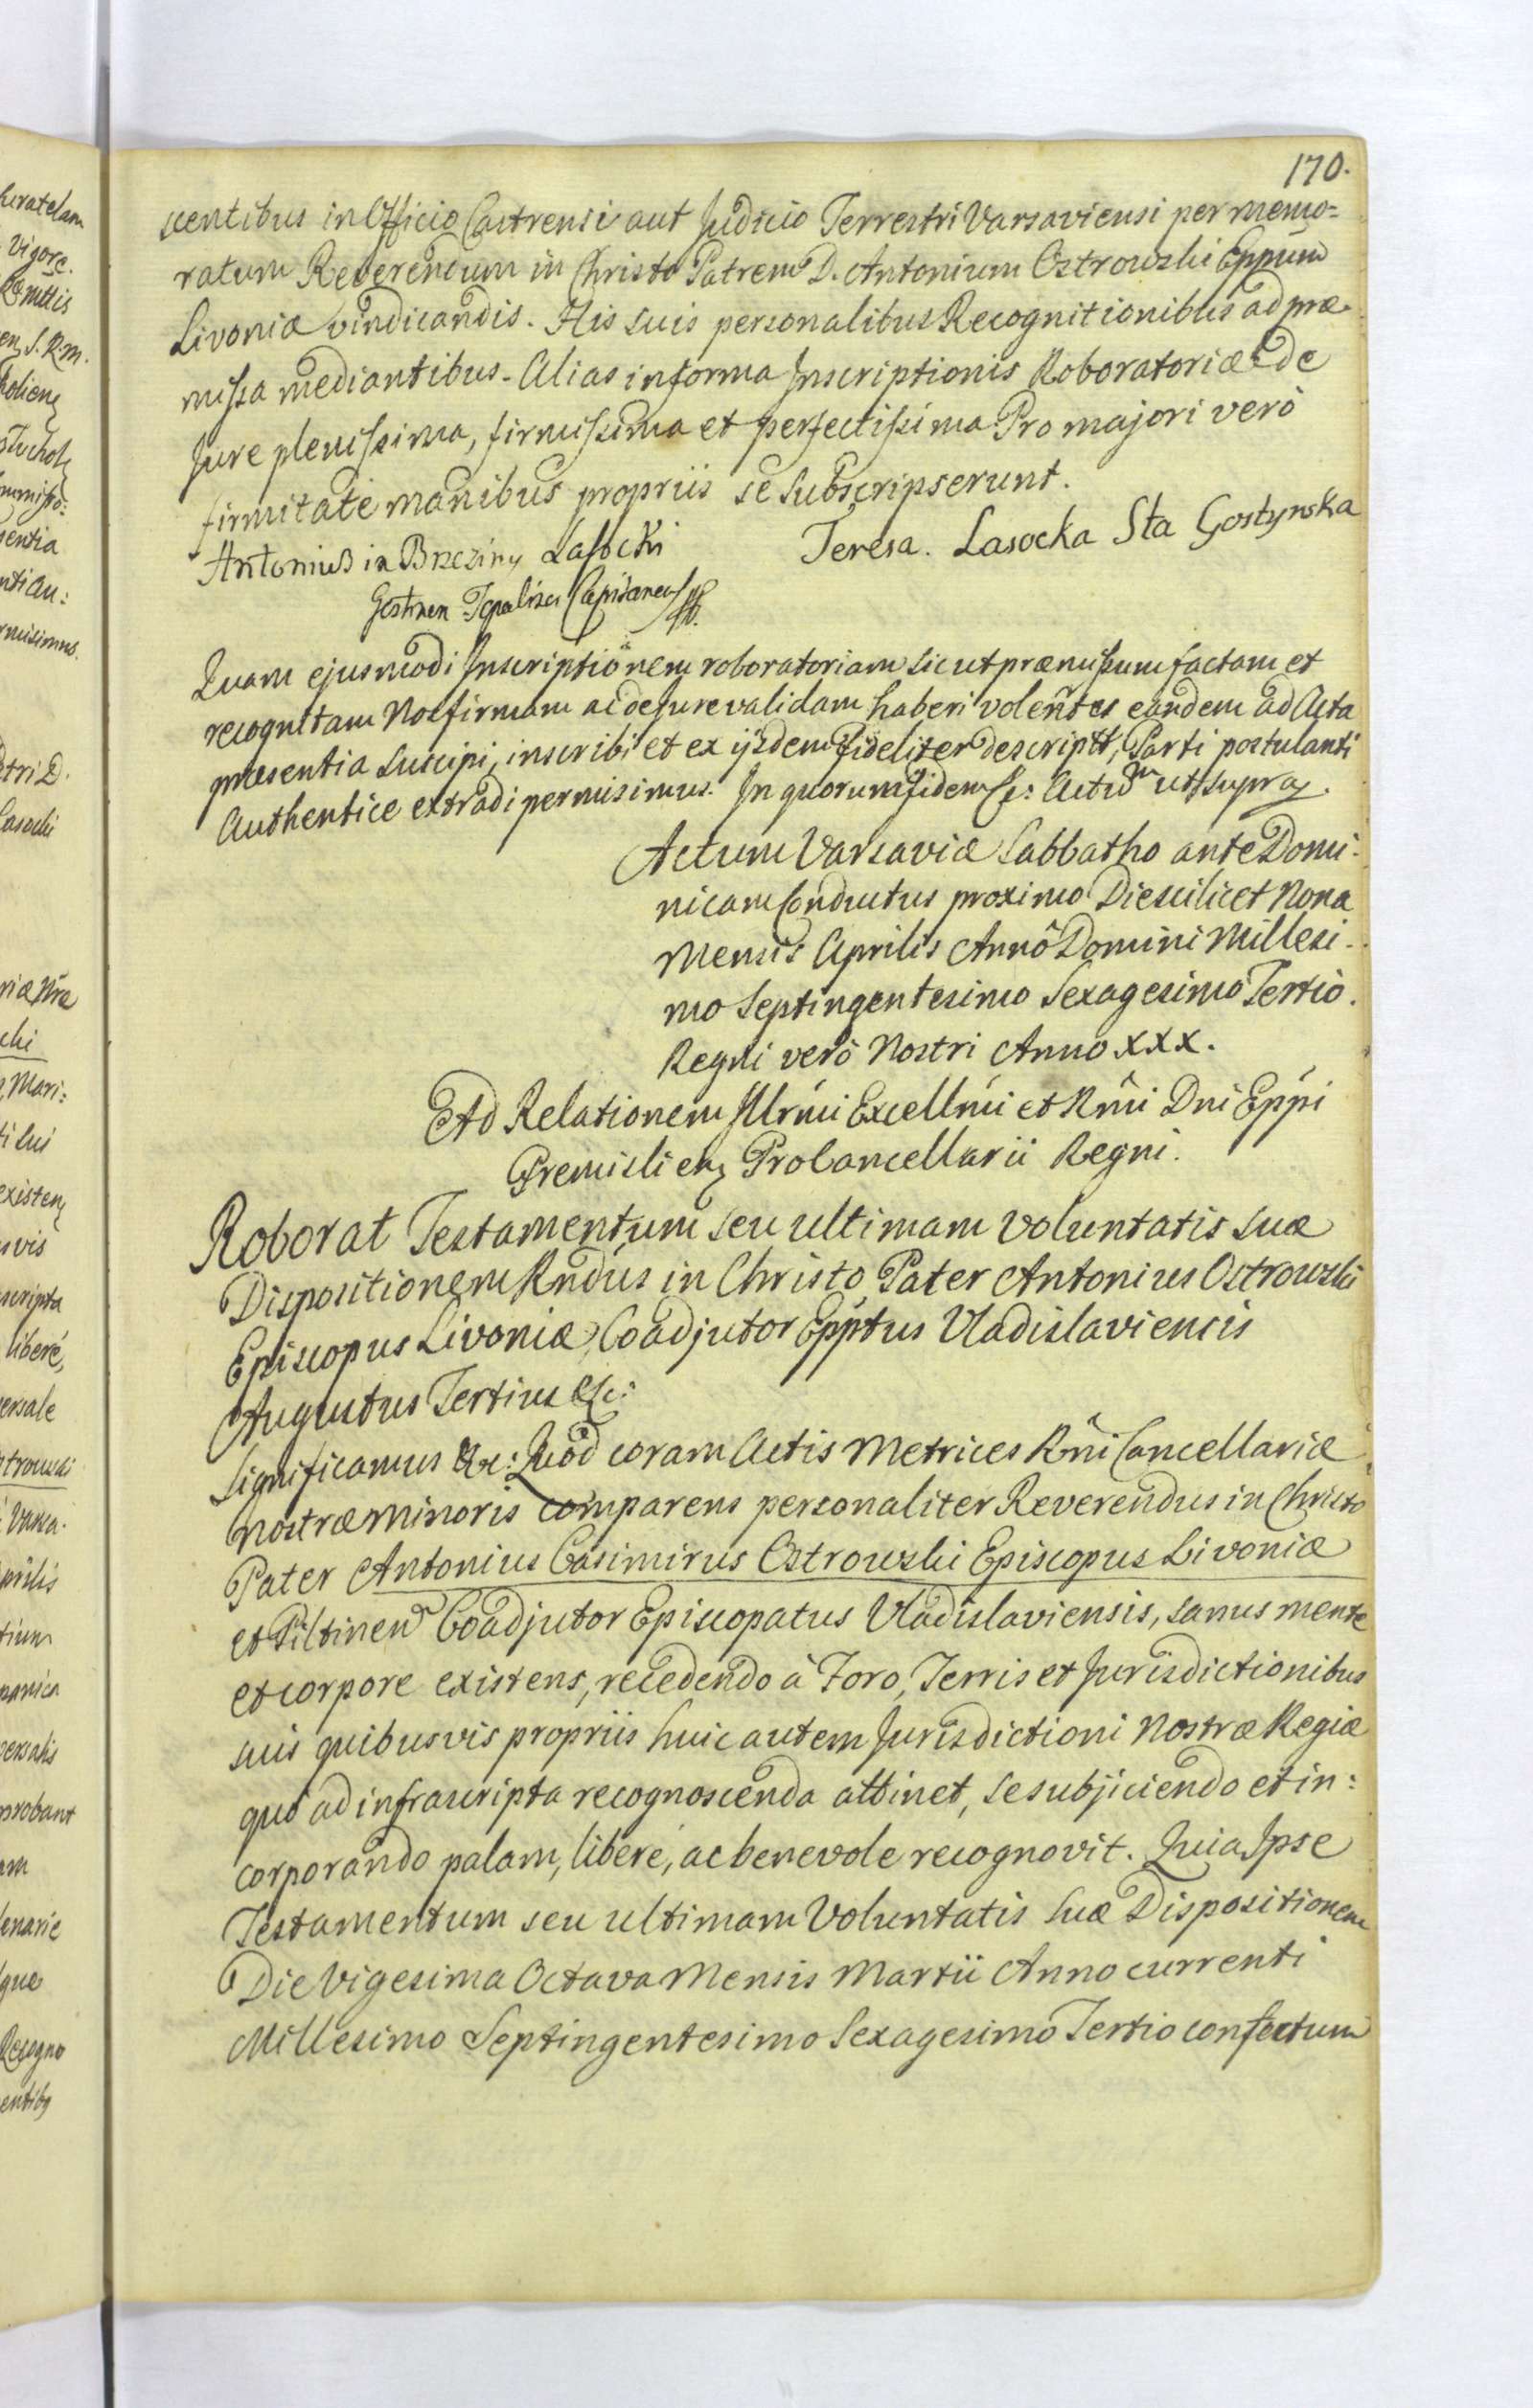 170.
scentibus in Officio Castrensi aut Judicio Terrestri Varsaviensi per memo=
ratum Reverendum in Christo Patrem D. Antonium Ostrowski Eppum
Livoniæ vindicandis. His suis personalibus Recognitionibus ad præ
missa mediantibus. Alias in forma Inscriptionis Roboratoriæ de
Jure plenissima, firmissima et perfectissima Pro majori verò
firmitate manibus propriis se subscripserunt.
Antonius in Brzeziny Lasocki
Teresa. Lasocka Sta Gostynska
Gostinen Capitaneus
Quam ejusmodi Inscriptionem roboratoriam sicut præmissum factam et
recognitam Nos firmam ac de Jure validam haberi volentes eandem ad Acta
præsentia suscipi, inscribi et ex ijsdem fideliter descriptt, Parti postulanti
Authentice extradi permisimus. In quorum fidem &c: Actum ut supra.
Actum Varsaviæ Sabbatho ante Domi-
nicam Conductus proximo Die scilicet Nona
Mensis Aprilis Annô Domini Millesi-
mo Septingentesimo Sexagesimo Tertiò.
Regni verò Nostri Anno XXX.
Ad Relationem Illrmi Excellmi et Rmi Dni Eppi
Premislien Procancellarii Regni.
Roborat Testamentum seu ultimam voluntatis suæ
Dispositionem Rndus in Christo Pater Antonius Ostrowski
Episcopus Livoniæ, Coadjutor Epptus Vladislaviensis
Augustus Tertius &c:
Significamus &c: Quod coram Actis Metrices Rni Cancellariæ
Nostræ Minoris comparens personaliter Reverendus in Christo
Pater Antonius Casimirus Ostrowski Episcopus Livoniæ
et Piltinen Coadjutor Episcopatus Vladislaviensis, sanus mente
et corpore existens, recedendo à Foro, Terris et Jurisdictionibus
suis quibusvis propriis huic autem Jurisdictioni Nostræ Regiæ
quo ad infrascripta recognoscenda attinet, se subjiciendo et in:
corporando palam, liberè, ac benevole recognovit. Quia Ipse
Testamentum seu ultimam Voluntatis suæ Dispositionem
Die Vigesima Octava Mensis Martii Anno currenti
Millesimo Septingentesimo Sexagesimo Tertio confectum